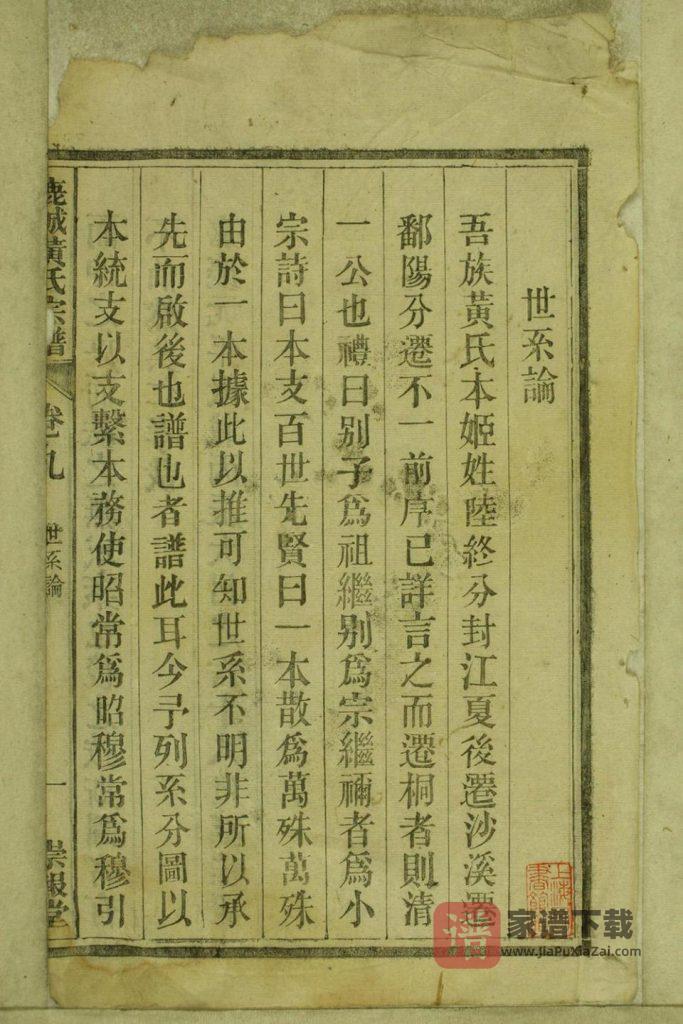 世系論
吾族黃氏本姬姓陸終分封江夏後遷沙溪遷
鄱陽分遷不一前序已詳言之而遷桐者則清
一公也禮曰別子爲祖繼別爲宗繼禰者爲小
宗詩曰本支百世先賢曰一本散爲萬殊萬殊
由於一本據此以推可知世系不明非所以承
先而啟後也譜也者譜此耳今予列系分圖以
本統支以支繫本務使昭常爲昭穆常爲穆引
鹿城黃氏宗譜 卷九 世系論 一 崇報堂
家谱下载
www.jiaPuXiaZai.com
譜